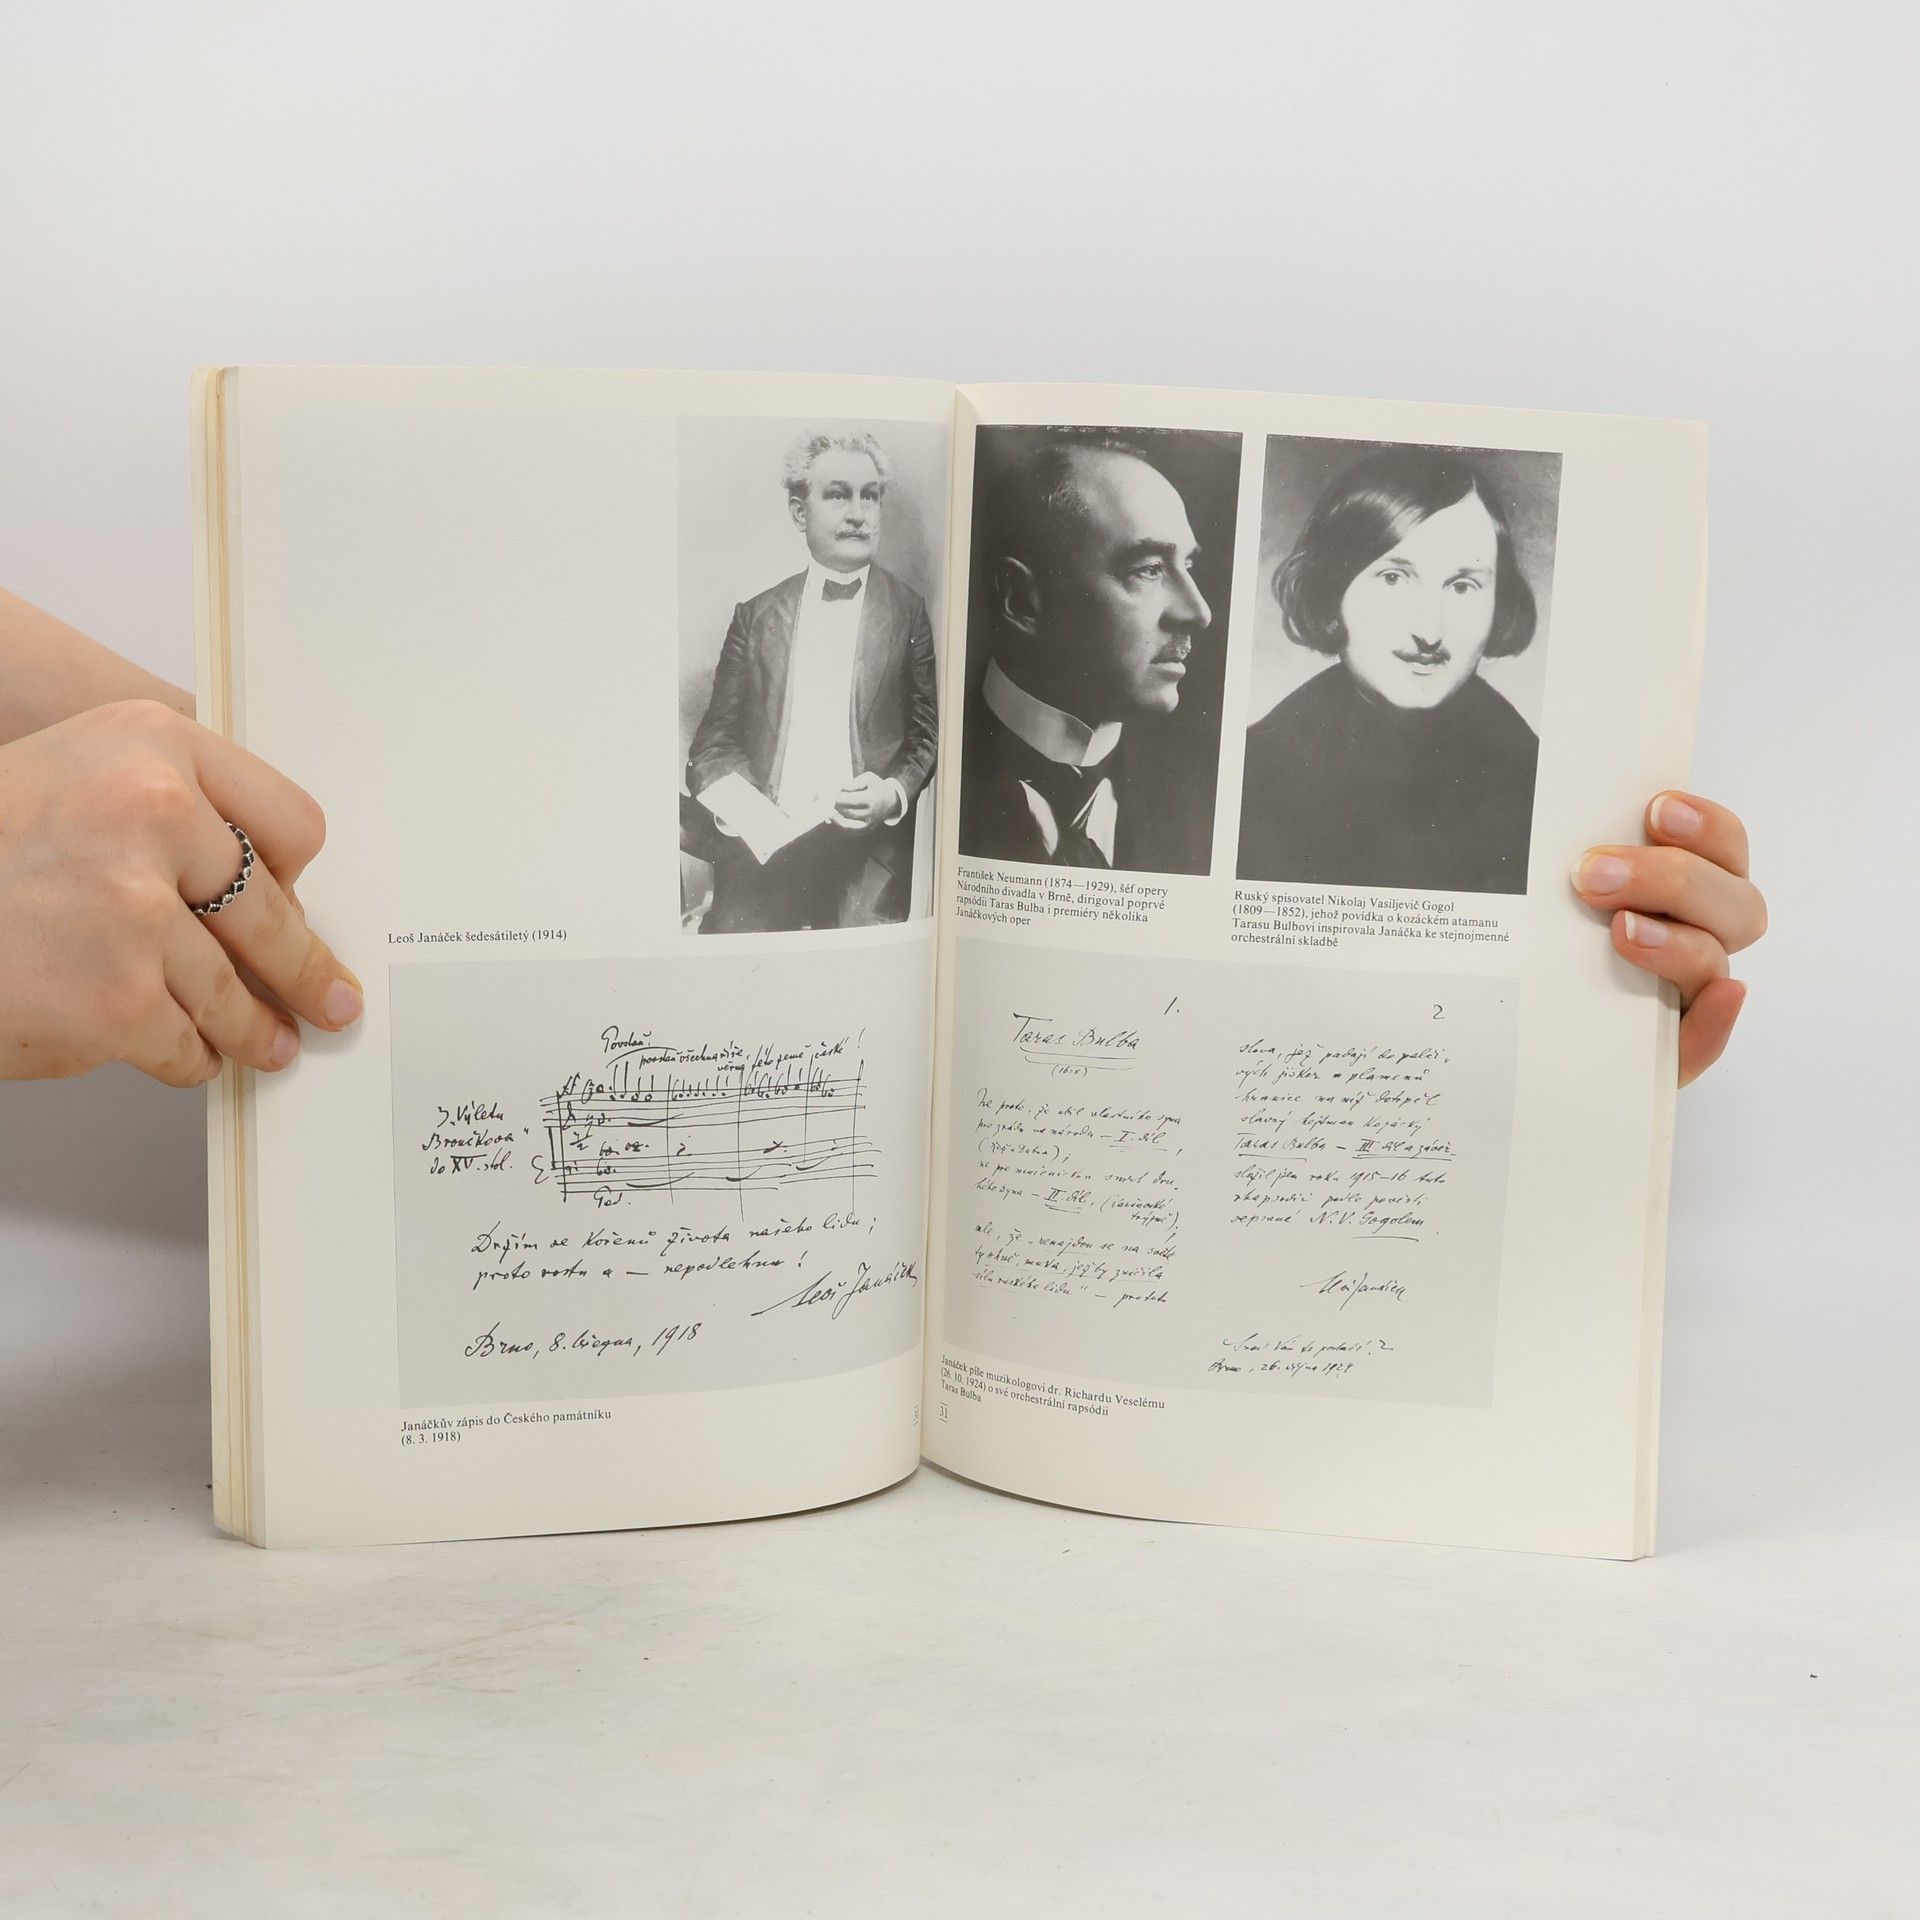 Leoš Janáček šedesátiletý (1914)
Povstaň!
povstaň všechna říše,
věrná této země české!
Z „Výletu
Broučkova“
do XV. stol.
Ped.
Držím se kořenů života našeho lidu;
proto rostu a — nepodlehnu!
Leoš Janáček
Brno, 8. března, 1918
Janáčkův zápis do Českého památníku
(8. 3. 1918)
František Neumann (1874—1929), šéf opery
Národního divadla v Brně, dirigoval poprvé
rapsódii Taras Bulba i premiéry několika
Janáčkových oper
Ruský spisovatel Nikolaj Vasiljevič Gogol
(1809—1852), jehož povídka o kozáckém atamanu
Tarasu Bulbovi inspirovala Janáčka ke stejnojmenné
orchestrální skladbě
1.
Taras Bulba
Ne proto, že ubil vlastního syna
pro zradu na národu — I. díl
ne pro mučenickou smrt dru-
hého syna — II. díl,
ale, že „nenajdou se na světě
ty ohně, muka, jež by zničila
sílu ruského lidu“ — pro tato
2
slova, jež padají do palči-
vých jisker a plamenů
hranice na níž dotrpěl
slavný hejtman kozácký
Taras Bulba — III. díl a závěr
složil jsem roku 1915–16 tuto
rhapsodii podle pověsti
sepsané N. V. Gogolem
Leoš Janáček
Brno, 26. října 1924
Janáček píše muzikologovi dr. Richardu Veselému
(26. 10. 1924) o své orchestrální rapsódii
Taras Bulba
31